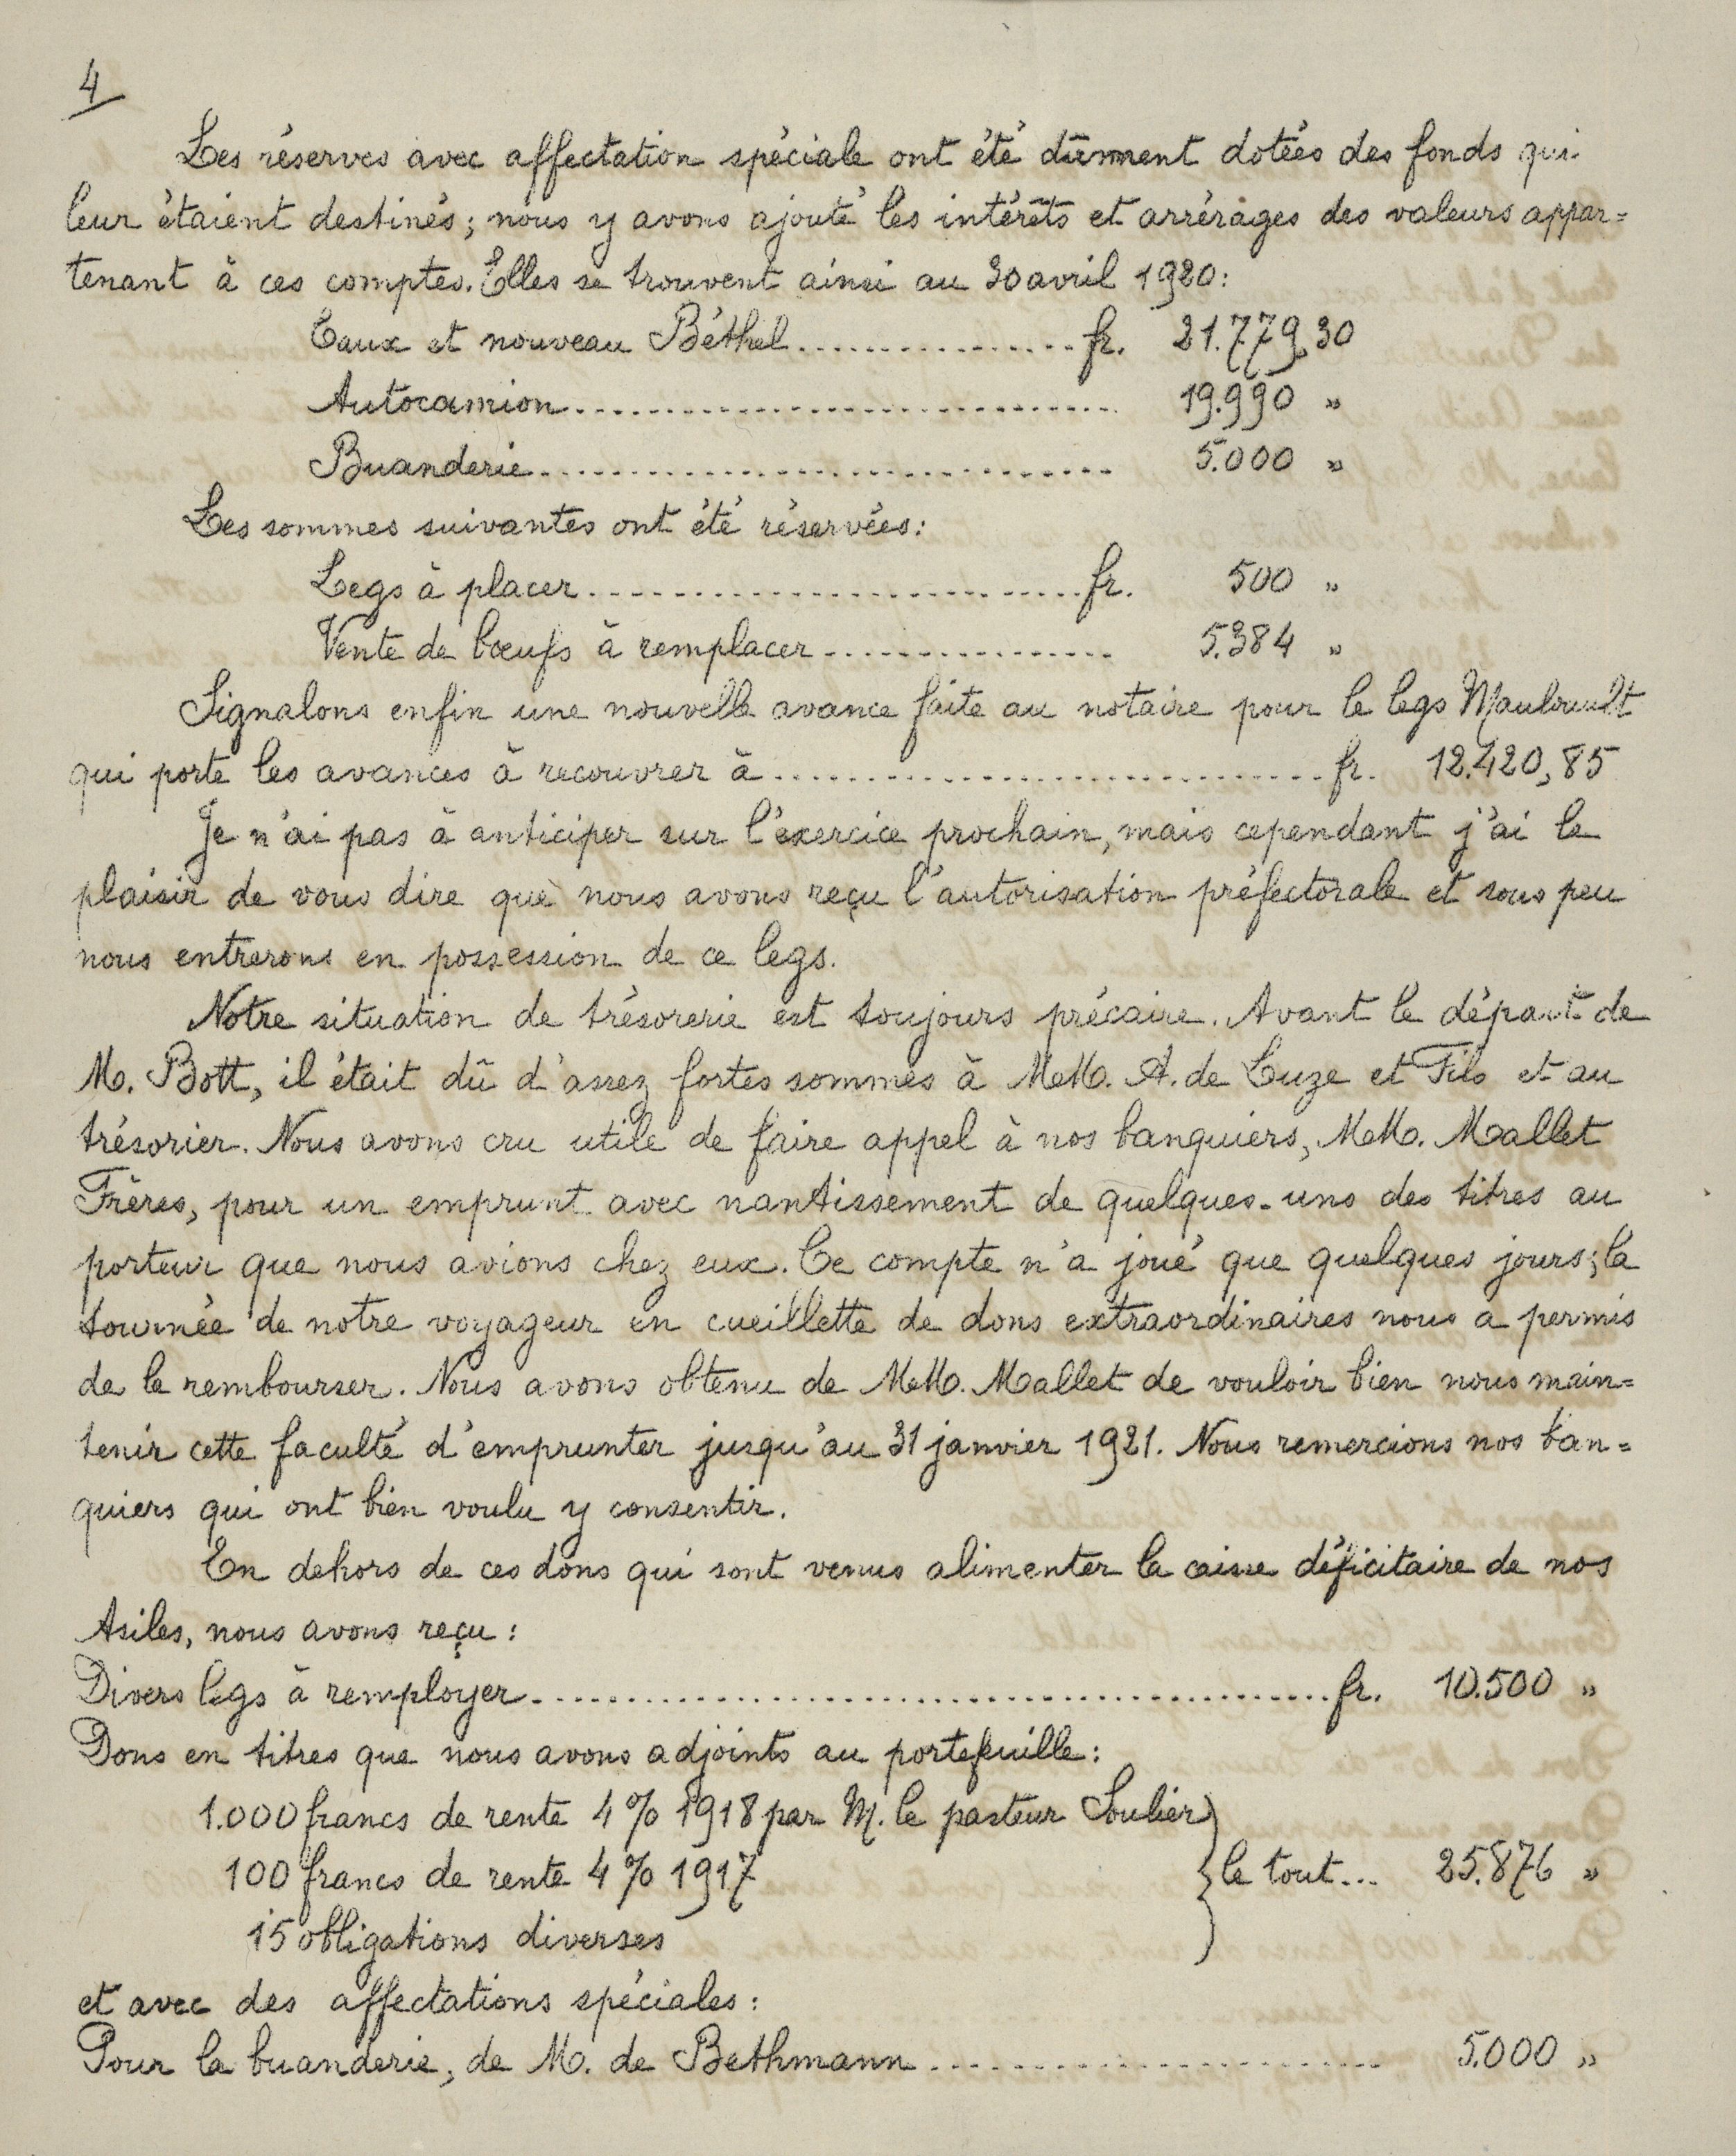 4
Les réserves avec affectation spéciale ont été dûment dotées des fonds qui
leur étaient destinés; nous y avons ajouté les intérêts et arrérages des valeurs appar=
tenant à ces comptes. Elles se trouvent ainsi au 30 avril 1920:
Eaux et nouveau Béthel................. fr. 21.779,30
Autocamion............................... 19.990 "
Buanderie................................ 5.000 "
Les sommes suivantes ont été réservées:
Legs à placer............................ fr. 500 "
Vente de bœufs à remplacer................. 5.384 "
Signalons enfin une nouvelle avance faite au notaire pour le legs
qui porte les avances à recouvrer à............................... fr. 12.420,85
Je n'ai pas à anticiper sur l'exercice prochain, mais cependant j'ai le
plaisir de vous dire que nous avons reçu l'autorisation préfectorale et sous peu
nous entrerons en possession de ce legs.
Notre situation de trésorerie est toujours précaire. Avant le départ de
M. Bott, il était dû d'assez fortes sommes à MM. A. de Luze et Fils et au
trésorier. Nous avons cru utile de faire appel à nos banquiers, MM. Mallet
Frères, pour un emprunt avec nantissement de quelques-uns des titres au
porteur que nous avions chez eux. Ce compte n'a joué que quelques jours; la
tournée de notre voyageur en cueillette de dons extraordinaires nous a permis
de le rembourser. Nous avons obtenu de MM. Mallet de vouloir bien nous main=
tenir cette faculté d'emprunter jusqu'au 31 janvier 1921. Nous remercions nos ban=
quiers qui ont bien voulu y consentir.
En dehors de ces dons qui sont venus alimenter la caisse déficitaire de nos
Asiles, nous avons reçu:
Divers legs à remployer............................................. fr. 10.500 "
Dons en titres que nous avons adjoints au portefeuille:
1.000 francs de rente 4% 1918 par M. le pasteur Soulier
100 francs de rente 4% 1917 } le tout... 25.876 "
15 obligations diverses
et avec des affectations spéciales:
Pour la buanderie, de M. de Bethmann.......................... 5.000 "